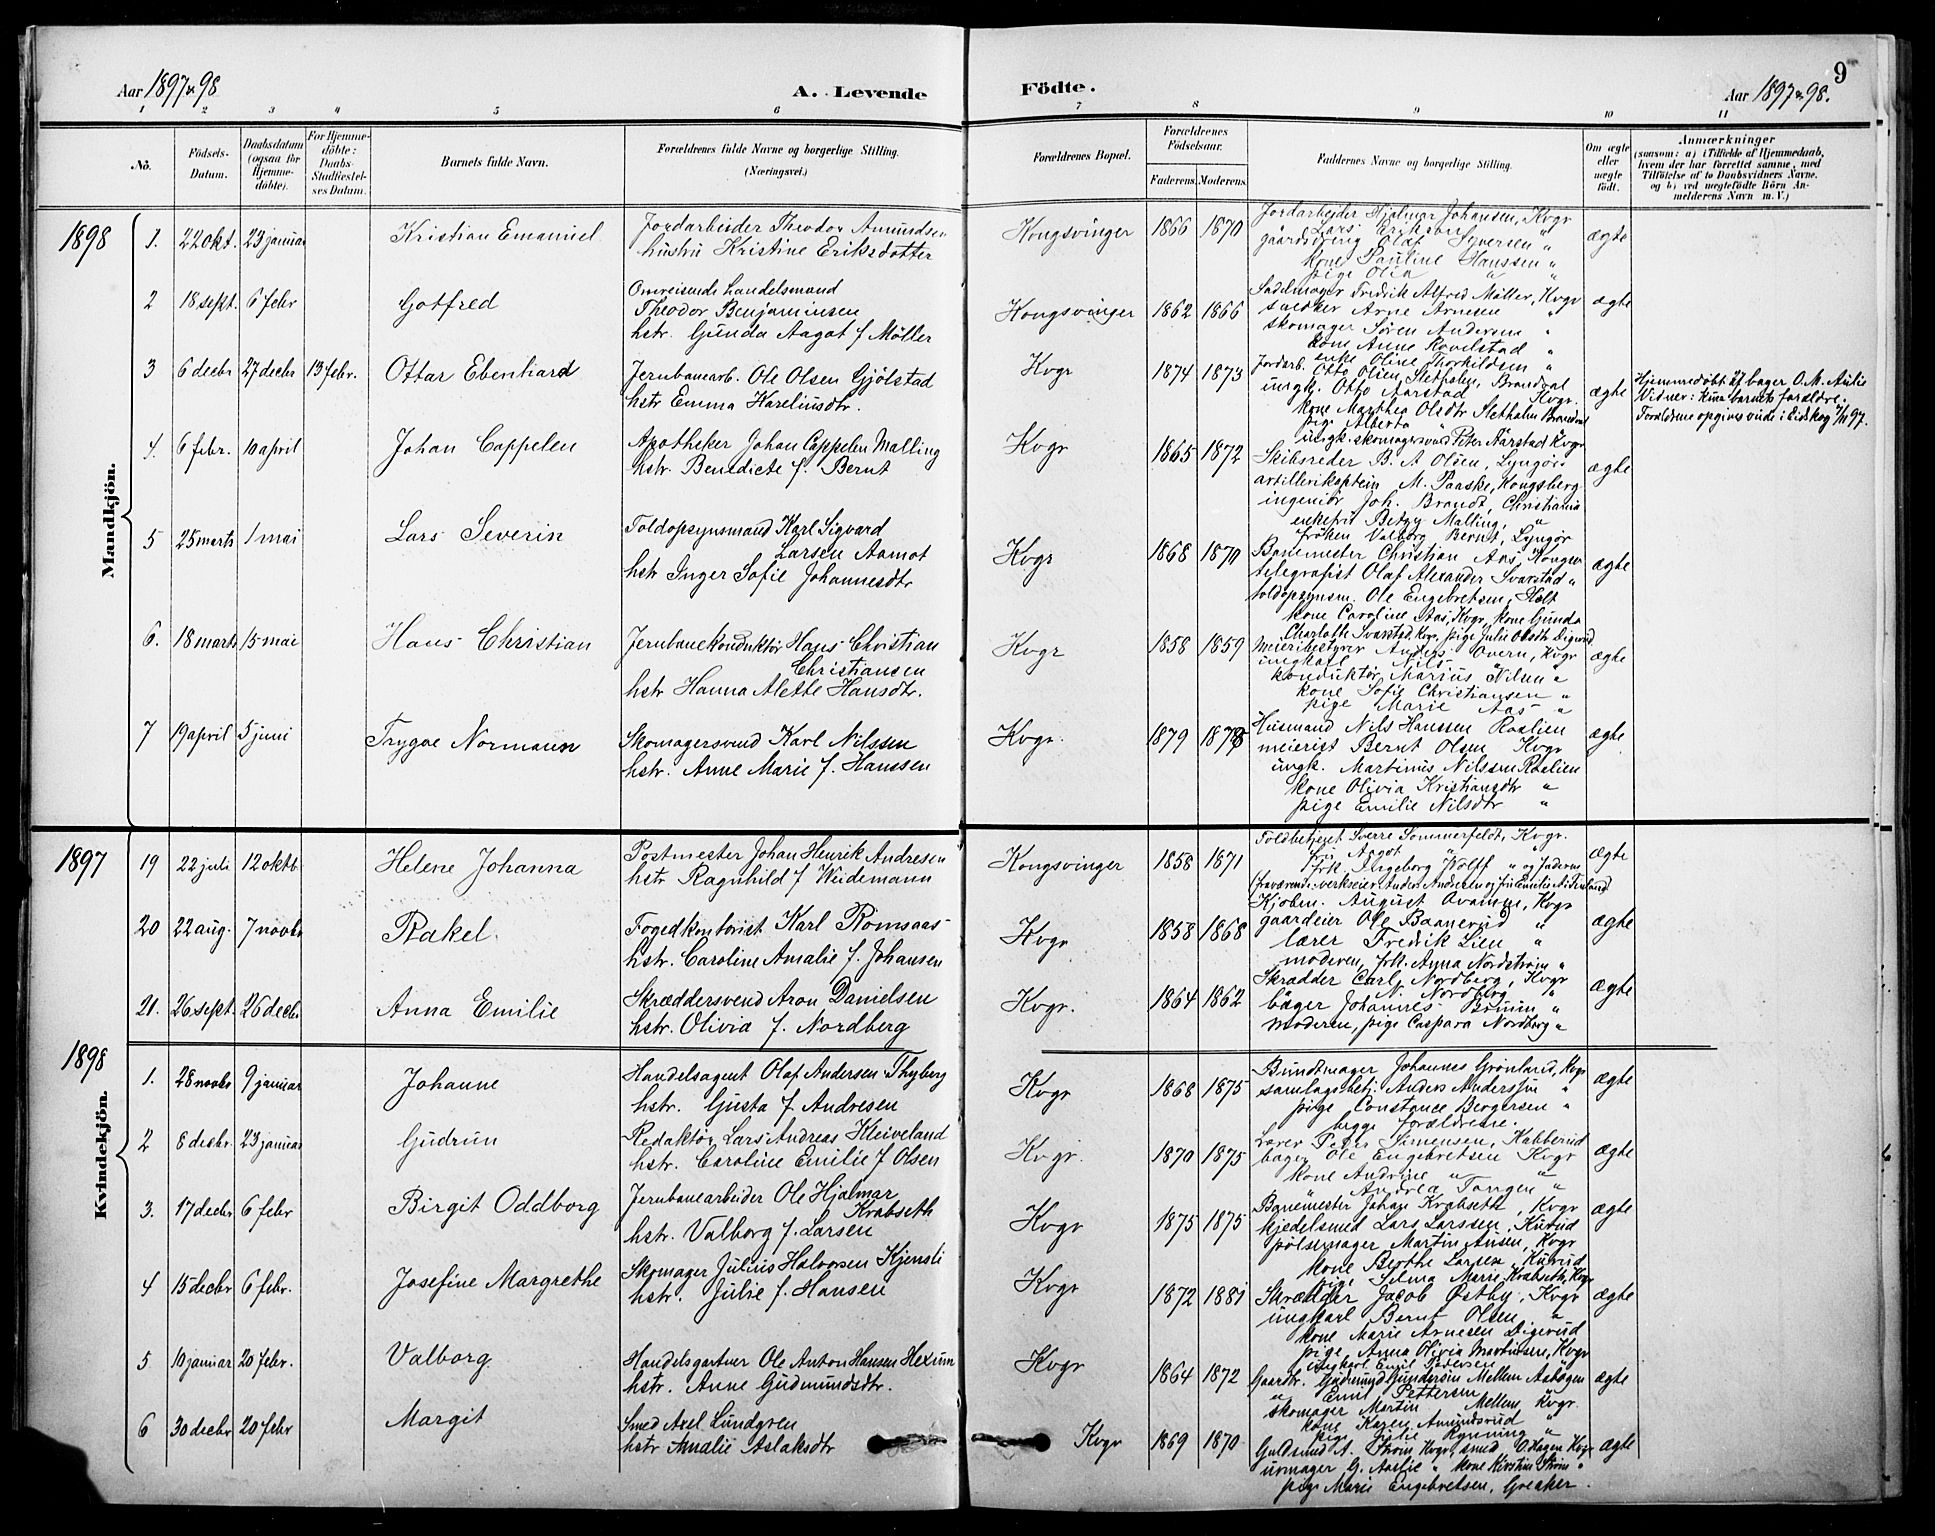 9
Aar 1897 & 98
A. Levende Födte.
Aar 1897 & 98.
1 2 3 4 5 6 7 8 9 10 11
No. Födsels-Datum. Daabsdatum (ogsaa for Hjemme-döbte). For Hjemme-döbte: Daabs-Stadfæstel-ses Datum. Barnets fulde Navn. Forældrenes fulde Navne og borgerlige Stilling. (Næringsvei.) Forældrenes Bopæl. Forældrenes Födselsaar. Faderens. Moderens. Faddernes Navne og borgerlige Stilling. Om ægte eller uægte födt. Anmærkninger (saasom: a) i Tilfælde af Hjemmedaab, hvem der har forrettet samme, med Tilföielse af to Daabsvidners Navne. og b) ved uægtefödte Börn An-melderens Navn m. V.)
Mandkjön.
1898 1. 22 okt. 23 januar Kristian Emanuel Jordarbeider Theodor Amundsen Kongsvinger 1866 1870 Jordarbeider Hjalmar Johansen, Kvgr ægte
hustru Kristine Eriksdatter Lars Eriksen "
gaardsdreng Olaf Syversen "
kone Pauline Hanssen "
pige Olia " "
2 18 sept. 6 febr Gotfred Omreisende handelsmand Kongsvinger 1862 1866 Sadelmager Fredrik Alfred Möller, Kvgr ægte
Theodor Benjaminsen snedker Arne Arnesen "
hstr. Gunda Aagot f. Möller skomager Sören Andersen "
kone Anne Rovelstad "
enke Oline Thorkildsen "
3 6 decbr 27 decbr 13 febr. Ottar Ebenhard Jernbanearb. Ole Olsen Gjölstad Kvgr 1874 1873 Jordarb. Otto Olsen Sletholen, Brandval ægte Hjemmedöbt af bager O. M. Aulie
hstr Emma Kareliusdtr. ungk. Otto Aarstad Kvgr. Vidner: Kun barnets forældre.
kone Marthea Olsdtr Sletholen Brandval Forældrene opgives viede i Eidskog 7/11 97.
pige Alberta "
ungk. skomagersvend Peter Aarstad Kvgr
4. 6 febr. 10 april Johan Cappelen Apotheker Johan Cappelen Malling Kvgr 1865 1872 Skibsreder B. A. Olsen, Lyngör ægte
hstr. Benedicte f. Bernt artillerikaptein M. Paaske, Kongsberg
ingeniör Joh. Brandt, Christiania
enkefru Betzy Malling, "
fröken Valborg Bernt, Lyngör
5 25 marts 1 mai Lars Severin Toldopsynsmand Karl Sigvard Kvgr 1868 1870 Banemester Christian Aas, Kongsv ægte
Larsen Aamot telegrafist Olaf Alexander Svarstad "
hstr Inger Sofie Johannesdtr toldopsynsm. Ole Engebretsen, Holt
kone Caroline Aas, Kvgr, kone Gunda
Charlotte Svarstad, Kvgr, pige Julie Olsdtr Digerud
6. 18 marts 15 mai Hans Christian Jernbanekonduktör Hans Christian Kvgr 1858 1859 Meieribestyrer Anders Overn, Kvgr ægte
Christiansen ungkarl Nils " "
hstr Hanna Alette Hansdtr. konduktör Marius Nilsen "
kone Sofie Christiansen "
pige Marie Aas "
7 19 april 5 juni Trygve Normann Skomagersvend Karl Nilssen Kvgr. 1879 1878 Husmand Nils Hanssen Raslien ægte
hstr. Anne Marie f. Hanssen meierist Bernt Olsen Kvgr
ungk. Martinus Nilssen Raslien
kone Olivia Kristiansdtr "
pige Emilie Nilsdtr "
Kvindekjön.
1897 19 22 juli 12 oktb. Helene Johanna Postmester Johan Henrik Andresen Kongsvinger 1858 1871 Toldbetjent Sverre Sommerfeldt, Kvgr. ægte
hstr Ragnhild f Weidemann fru Aagot " "
frk. Ingeborg Wolff " og faderen
20 22 aug. 7 novbr Rakel. Fogedkontorist Karl Romsaas Kvgr 1858 1868 Kjöbm. August Overnn, Kvgr ægte
hstr. Caroline Amalie f. Johansen gaardeier Ole Baanerud "
lærer Fredrik Lien "
moderen, frk. Anna Nordström "
21. 26 sept. 26 decbr Anna Emilie Skræddersvend Aron Danielsen Kvgr. 1864 1862 Skrædder Carl Nordberg, Kvgr ægte
hstr. Olivia f. Nordberg N. Nordberg "
bager Johannes Bruun "
moderen, pige Caspara Nordberg "
1898 1. 28 novbr 9 januar Johanne Handelsagent Olaf Andersen Thyberg Kvgr 1868 1875 Bundtmager Johannes Grönlund, Kvgr ægte
hstr. Gusta f. Andresen samlagsbetj. Anders Anderssen "
pige Constance Bergersen "
begge forældrene.
2 8 decbr. 23 januar Gudrun Redaktör Lars Andreas Kleiveland Kvgr. 1870 1875 Lærer Peter Simensen, Kabberud ægte
hstr. Caroline Emilie f Olsen bager Ole Engebretsen Kvgr
kone Andrine " "
Andrea Tangen "
3. 17 decbr 6 febr Birgit Oddborg Jernbanearbeider Ole Hjalmar Kvgr 1875 1875 Banemester Johan Krabseth, Kvgr ægte
Krabseth kjedelsmed Lars Larssen, Kurud
hstr. Valborg f. Larsen pölsemager Martin Ausen, Kvgr
kone Berthe Larsen, Kurud
pige Selma Marie Krabseth, Kvgr
4 15 decbr 6 febr. Josefine Margrethe Skomager Julius Halvorsen Kjensli Kvgr 1872 1881 Skrædder Jacob Östby, Kvgr ægte
hstr. Julie f. Hansen ungkarl Bernt Olsen "
kone Marie Arnesen Digerud
pige Anna Olivia Martinsen, Kvgr
ungkarl Emil Pedersen
5 10 januar 20 febr. Valborg Handelsgartner Ole Anton Hansen Hexum Kvgr 1864 1872 Gaardbr. Gudmund Gundersen Mellem Aabogen ægte
hstr. Anne Gudmundsdtr. " Emil Pettersen "
skomager Martin Mellem, Kvgr.
kone Karen Amundsrud "
pige Julie Rynning "
6 30 decbr 20 febr Margit Smed Axel Lundgren Kvgr 1869 1870 Guldsmed A. Ström Kvgr, smed O. Hagen Kvgr ægte
hstr Amalie Aslaksdtr urmager G. Aaslie " kone Kirstine Ström "
pige Marie Engebretsen, Greaker.